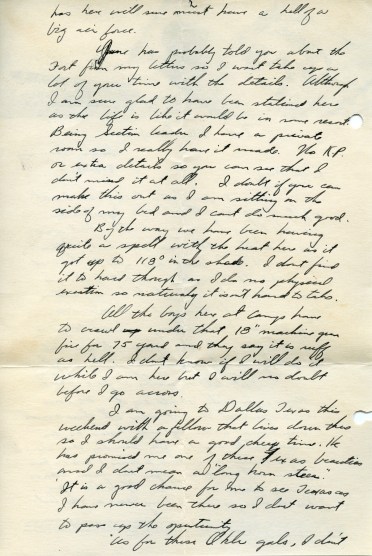 has here will sure must have a hell of a
big air force.
June has probably told you about the
Fort from my letters so I wont take up a
lot of your time with the details. Although
I am sure glad to have been stationed here
as the life is like it would be in some resort.
Being Section leader I have a private
room so I really have it made. No K.P.
or extra details so you can see that I
dont mind it at all. I doubt if you can
make this out as I am sitting on the
side of my bed and I cant do much good.
By the way we have been having
quite a spell with the heat here as it
got up to 118° in the shade. I dont find
it to hard though as I do no physical
exertion so naturally it isnt hard to take.
All the boys here at camp have
to crawl under that 18" machine gun
fire for 75 yards and they say it is ruff
as hell. I dont know if I will do it
while I am here but I will no doubt
before I go across.
I am going to Dallas Texas this
weekend with a fellow that lives down there
so I should have a good cheap time. He
has promised me one of those Texas beauties
and I dont mean a "long horn steer."
It is a good chance for me to see Texas as
I have never been there so I dont want
to pass up the oportunity.
As for these Okla gals, I don't